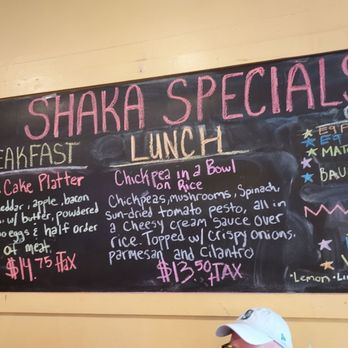 SHAKA SPECIALS
EAKFAST
Cake Platter
eddar, apple, bacon
w/ butter, powdered
eggs & half order
of meat.
$14.75 +Tax
LUNCH
Chickpea in a Bowl
on Rice
Chickpeas, mushrooms, Spinach,
Sun-dried tomato pesto, all in
a Cheesy cream Sauce over
rice. Topped w/ crispy onions,
parmesan and Cilantro
$13.50 +TAX
MAT
BAU
Lemon